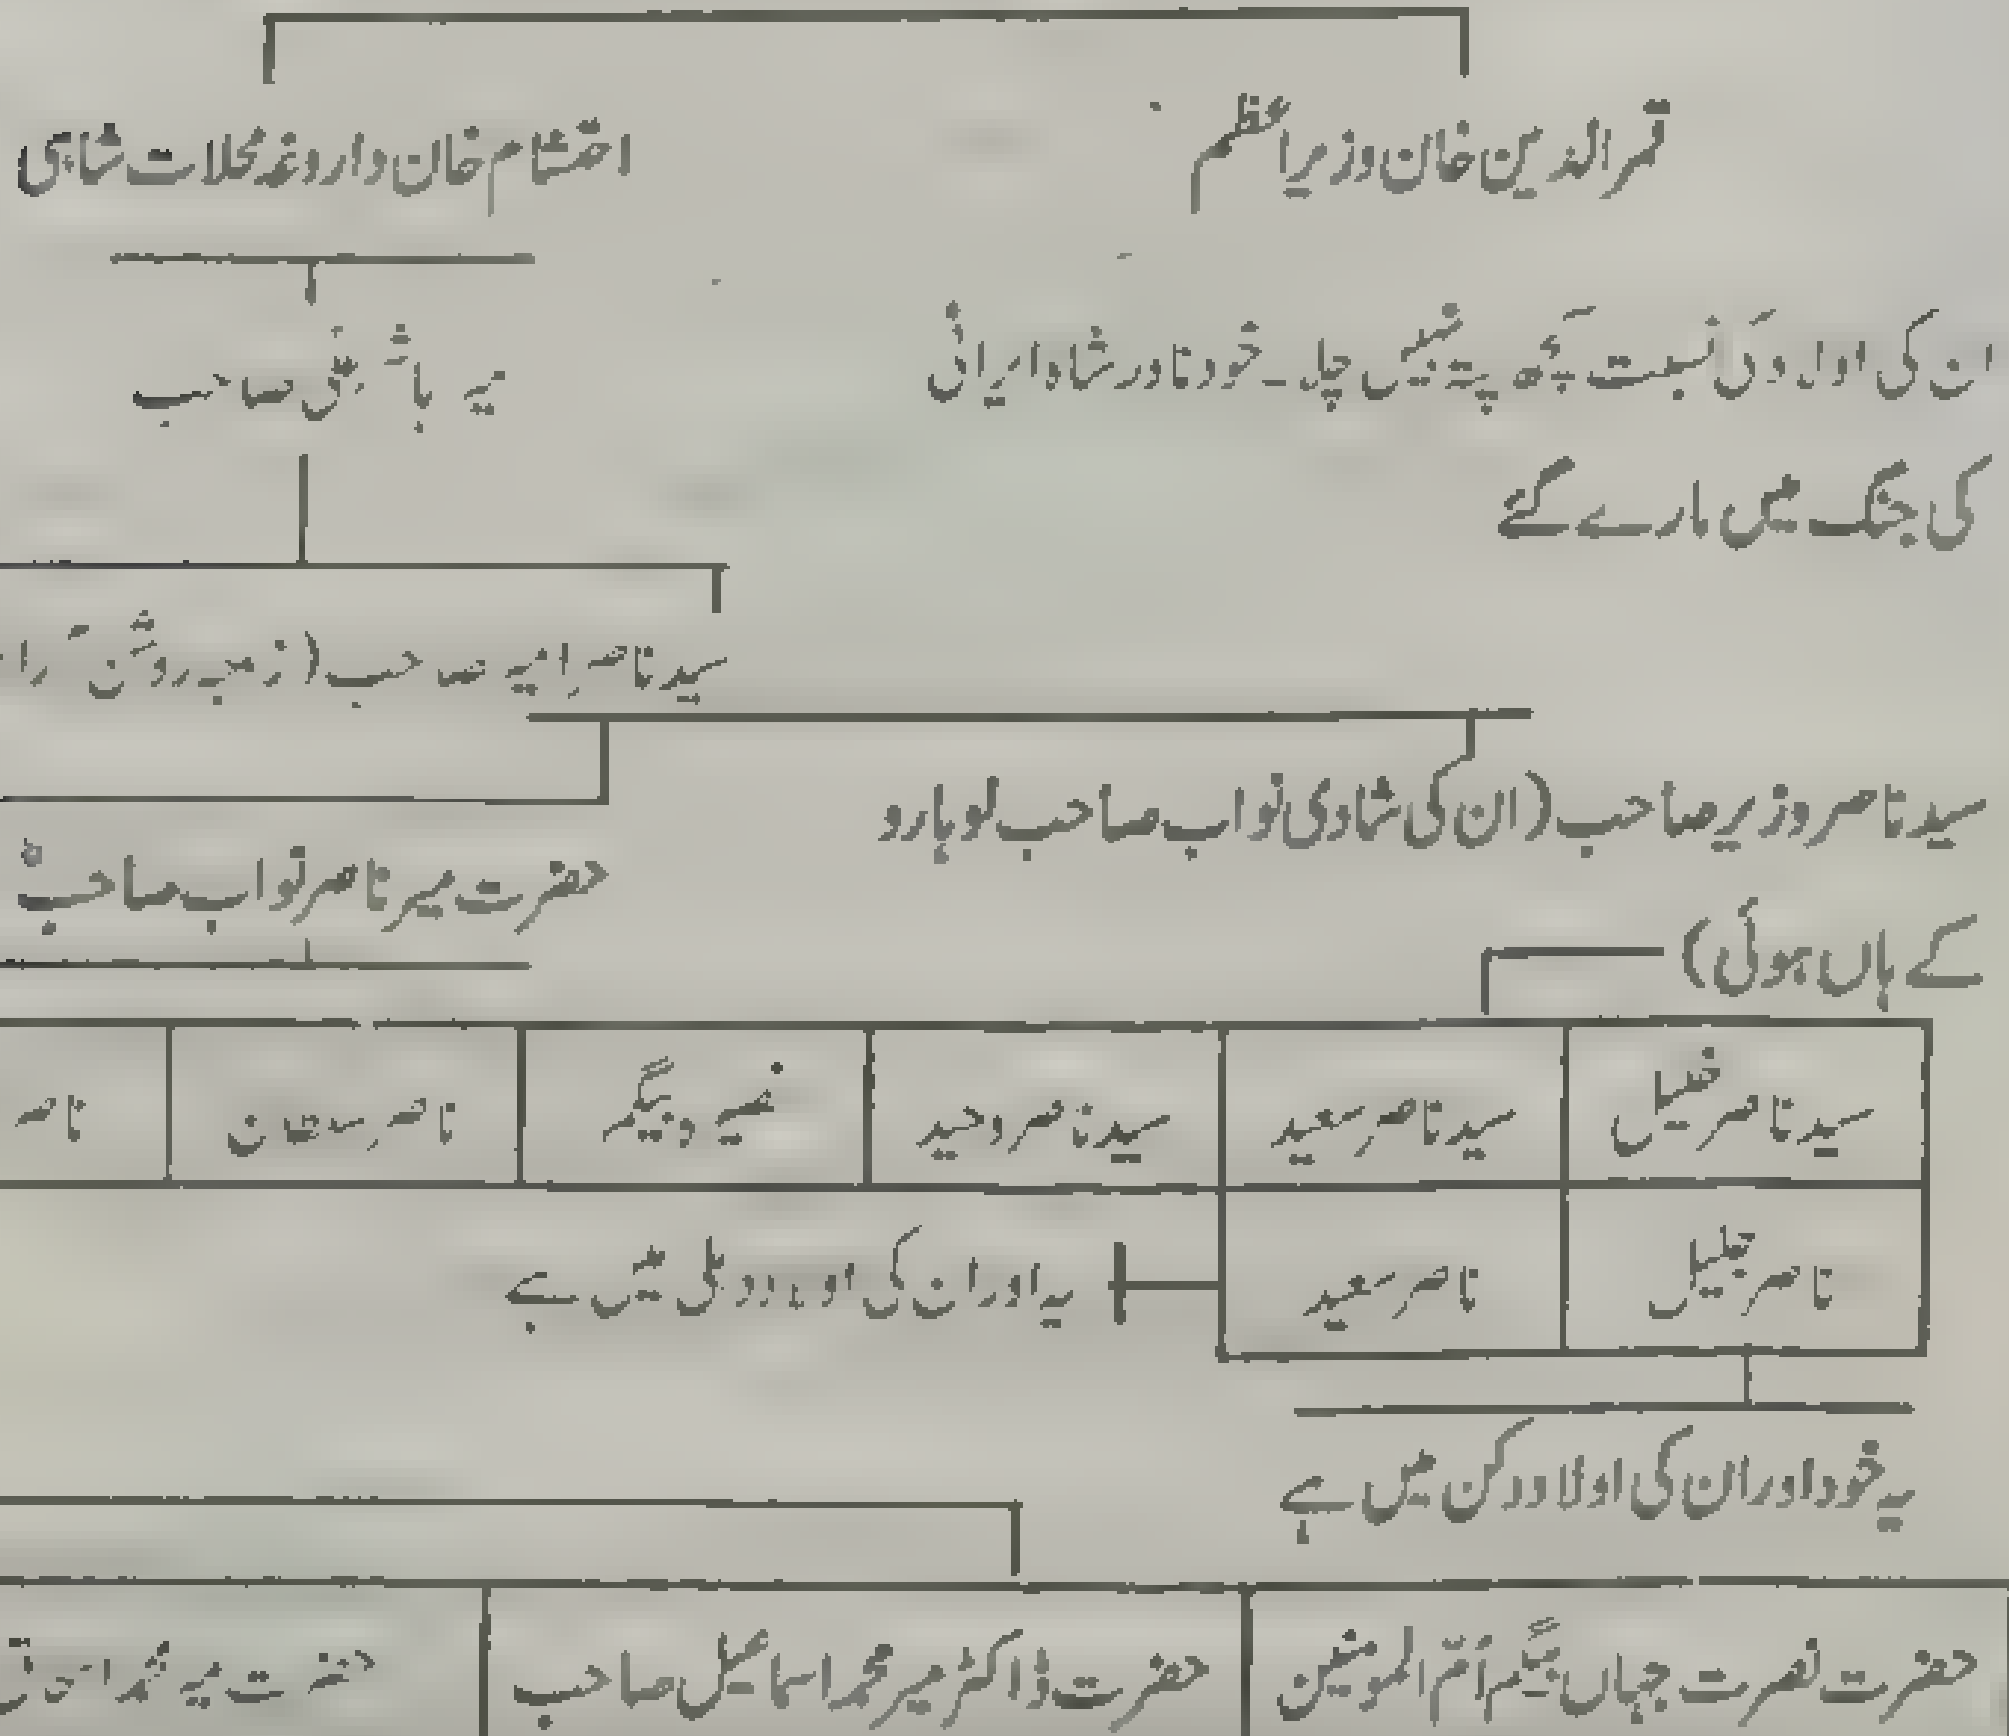 قمرالدین خان وزیراعظم
احتشام خان داروغہ محلات شاہی
ان کی اولاد کی نسبت کچھ پتہ نہیں چلا۔ خود نادر شاہ ایرانی
کی جنگ میں مارے گئے
میر ہاشم علی صاحب
سید ناصر امیر صاحب (زوجہ روشن آرا
سید ناصر وزیر صاحب (ان کی شادی نواب صاحب لوہارو
کے ہاں ہوئی)
حضرت میر ناصر نواب صاحبؓ
سید ناصر خلیل
سید ناصر سعید
سید ناصر وحید
نصیرہ بیگم
ناصر سلطان
ناصر
ناصر جلیل
ناصر سعید
یہ اور ان کی اولاد دہلی میں ہے
یہ خود اور ان کی اولاد دکن میں ہے
حضرت نصرت جہاں بیگم اُمّ المومنین
حضرت ڈاکٹر میر محمد اسماعیل صاحب
حضرت میر محمد